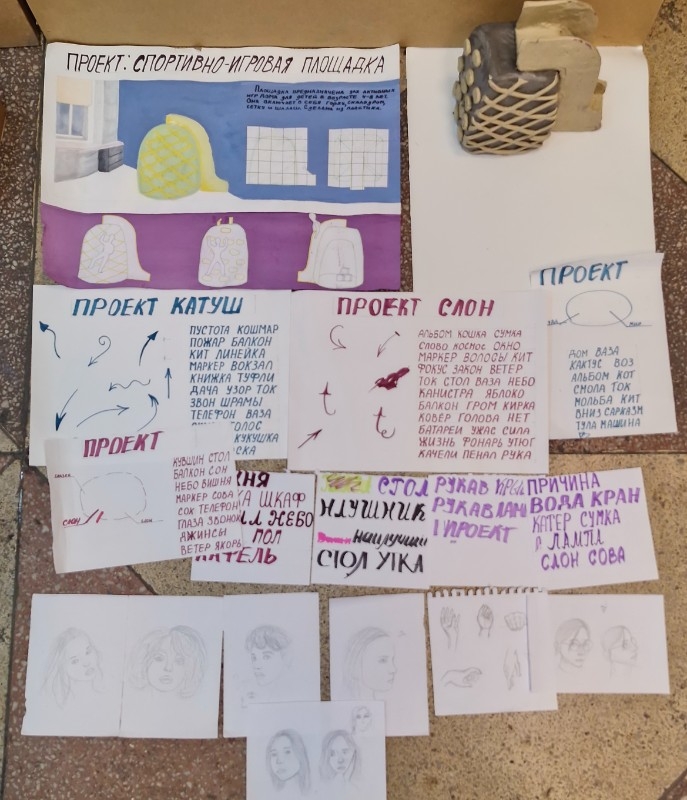 ПРОЕКТ: СПОРТИВНО-ИГРОВАЯ ПЛОЩАДКА
ПЛОЩАДКА ПРЕДНАЗНАЧЕНА ДЛЯ АКТИВНЫХ
ИГР ДОМА ДЛЯ ДЕТЕЙ В ВОЗРАСТЕ 4-8 ЛЕТ.
ОНА ВКЛЮЧАЕТ В СЕБЯ ГОРКУ, СКАЛОДРОМ,
СЕТКУ И
ПРОЕКТ КАТУШ
ПУСТОТА КОШМАР
ПОЖАР БАЛКОН
КИТ ЛИНЕЙКА
МАРКЕР ВОКЗАЛ
КНИЖКА ТУФЛИ
ДАЧА УЗОР ТОК
ЗВОН ШРАМЫ
ТЕЛЕФОН ВАЗА
ГОЛОС
КУКУШКА
СКА
ПРОЕКТ СЛОН
АЛЬБОМ КОШКА СУМКА
СЛОВО КОСМОС ОКНО
МАРКЕР ВОЛОСЫ КИТ
ФОКУС ЗАКОН ВЕТЕР
ТОК СТОЛ ВАЗА НЕБО
КАНИСТРА ЯБЛОКО
БАЛКОН ГРОМ КИРКА
КОВЕР ГОЛОВА НЕТ
БАТАРЕИ УЖАС СИЛА
ЖИЗНЬ ФОНАРЬ УТЮГ
КАЧЕЛИ ПЕНАЛ РУКА
ПРОЕКТ
ДОМ ВАЗА
КАКТУС ВОЗ
АЛЬБОМ КОТ
СМОЛА ТОК
МОЛЬБА КИТ
ВНИЗ САРКАЗМ
ТУЛА МАШИНА
ПРОЕКТ
КУВШИН СТОЛ
БАЛКОН СОН
НЕБО ВИШНЯ
МАРКЕР СОВА
СОК ТЕЛЕФОН
ГЛАЗА ЗВОНОК
ДЖИНСЫ
ВЕТЕР ЯКОРЬ
СЛОН
ХНЯ
КА ШКАФ
НЕБО
ПОЛ
ТЕЛЬ
СТОЛ
НАУШНИК
наушники
СТОЛ УТКА
РУКАВ
РУКАВ
ПРОЕКТ
ПРИЧИНА
ВОДА КРАН
КАТЕР СУМКА
ЛАМПА
СЛОН СОВА